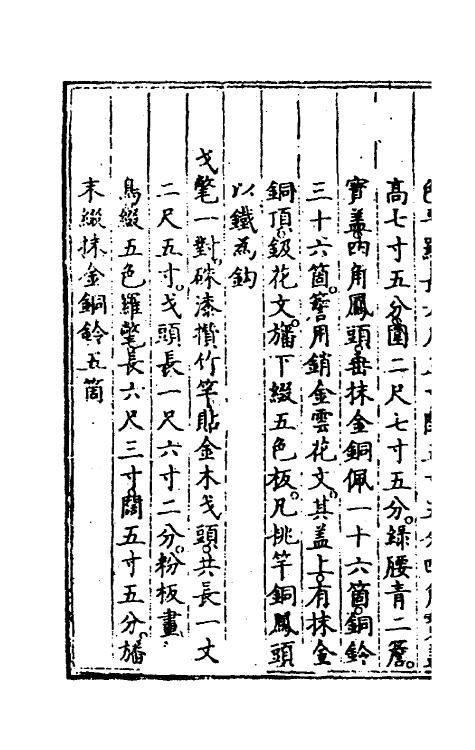 高七寸五分圍二尺七寸五分。綠腰青二簷。
寶蓋四角鳳頭垂抹金銅佩一十六箇銅鈴
三十六箇。簷用銷金雲花文。其蓋上有抹金
銅頂鈒花文。旛下綴五色板。凡挑竿銅鳳頭
以鐵為鈎
戈氅一對硃漆攢竹竿貼金木戈頭共長一丈
二尺五寸。戈頭長一尺六寸二分。粉板畫
鳥綴五色羅氅長六尺三寸闊五寸五分。旛
末綴抹金銅鈴五箇